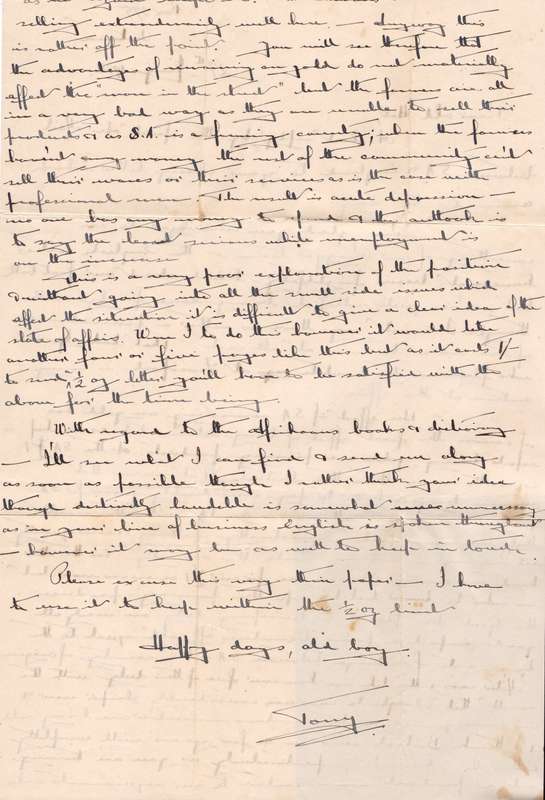 selling extraordinarily well here. — Anyway this
is rather off the point. You will see therefore that
the advantages of remaining on gold do not materially
effect the "man in the street" but the farmers are all
in a very bad way as they are unable to sell their
products & as S.A. is a farming country; when the farmers
haven't any money the rest of the community can't
sell their wares or their services as is the case with
professional men. The result is acute depression —
no one has any money to spend & the outlook is
to say the least serious while unemployment is
on the increase
This is a very poor explanation of the position
& without going into all the small side issues which
effect the situation it is difficult to give a clear idea of the
state of affairs. Were I to do this however it would take
another four or five pages like this but as it costs 1/-
to send ½ oz letter you'll have to be satisfied with the
above for the time being.
With regard to the Afrikaans books & dictionary
— I'll see what I can find & send em along
as soon as possible though I rather think your idea
though distinctly laudable is somewhat unnecessary
as in your line of business English is spoken throughout
— however it may be as well to keep in touch.
Please excuse this very thin paper — I have
to use it to keep within the ½ oz limit
Happy days, old boy.
Tony